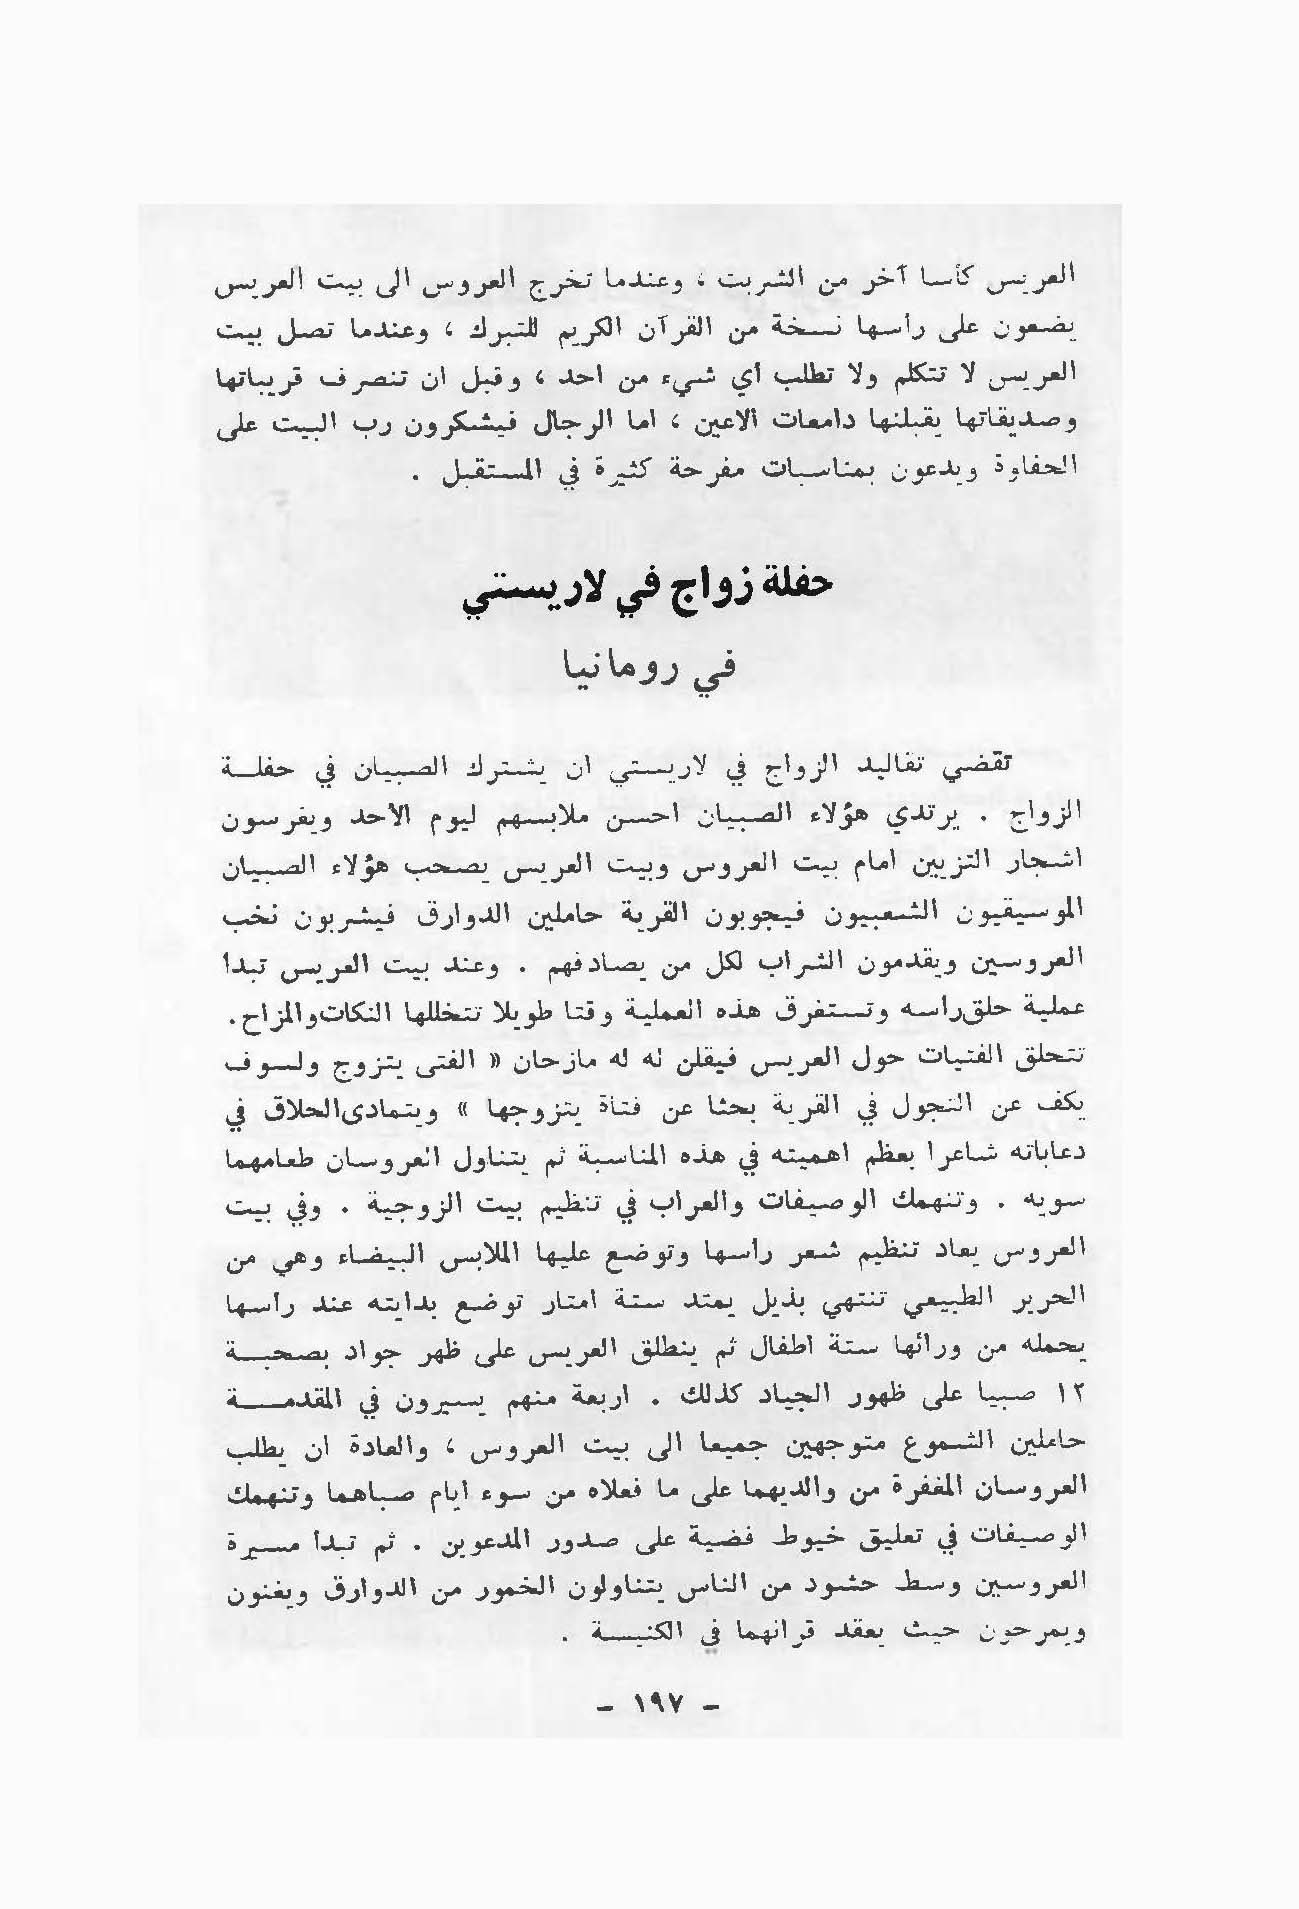 العريس كأسا آخر من الشربت ، وعندما تخرج العروس الى بيت العريس
يضعون على رأسها نسخة من القرآن الكريم للتبرك ، وعندما تصل بيت
العريس لا تتكلم ولا تطلب أي شيء من احد ، وقبل ان تنصرف قريباتها
وصديقاتها يقبلنها دامعات الاعين ، اما الرجال فيشكرون رب البيت على
الحفاوة ويدعون بمناسبات مفرحة كثيرة في المستقبل .
حفلة زواج في لاريستي
في رومانيا
تقضي تقاليد الزواج في لاريستي ان يشترك الصبيان في حفلة
الزواج . يرتدي هؤلاء الصبيان احسن ملابسهم ليوم الأحد ويغرسون
اشجار التزيين امام بيت العروس وبيت العريس يصحب هؤلاء الصبيان
الموسيقيون الشعبيون فيجوبون القرية حاملين الدوارق فيشربون نخب
العروسين ويقدمون الشراب لكل من يصادفهم . وعند بيت العريس تبدأ
عملية حلق رأسه وتستغرق هذه العملية وقتا طويلا تتخللها النكات والمزاح.
تتحلق الفتيات حول العريس فيقلن له له مازحان « الفتى يتزوج ولسوف
يكف عن التجول في القرية بحثا عن فتاة يتزوجها » ويتمادى الحلاق في
دعاباته شاعرا بعظم اهميته في هذه المناسبة ثم يتناول العروسان طعامهما
سويه . وتنهمك الوصيفات والعراب في تنظيم بيت الزوجية . وفي بيت
العروس يعاد تنظيم شعر رأسها وتوضع عليها الملابس البيضاء وهي من
الحرير الطبيعي تنتهي بذيل يمتد ستة امتار توضع بدايته عند رأسها
يحمله من ورائها ستة اطفال ثم ينطلق العريس على ظهر جواد بصحبة
١٢ صبيا على ظهور الجياد كذلك . اربعة منهم يسيرون في المقدمة
حاملين الشموع متوجهين جميعا الى بيت العروس ، والعادة ان يطلب
العروسان المغفرة من والديهما على ما فعلاه من سوء ايام صباهما وتنهمك
الوصيفات في تعليق خيوط فضية على صدور المدعوين . ثم تبدأ مسيرة
العروسين وسط حشود من الناس يتناولون الخمور من الدوارق ويغنون
ويمرحون حيث يعقد قرانهما في الكنيسة .
- ١٩٧ -